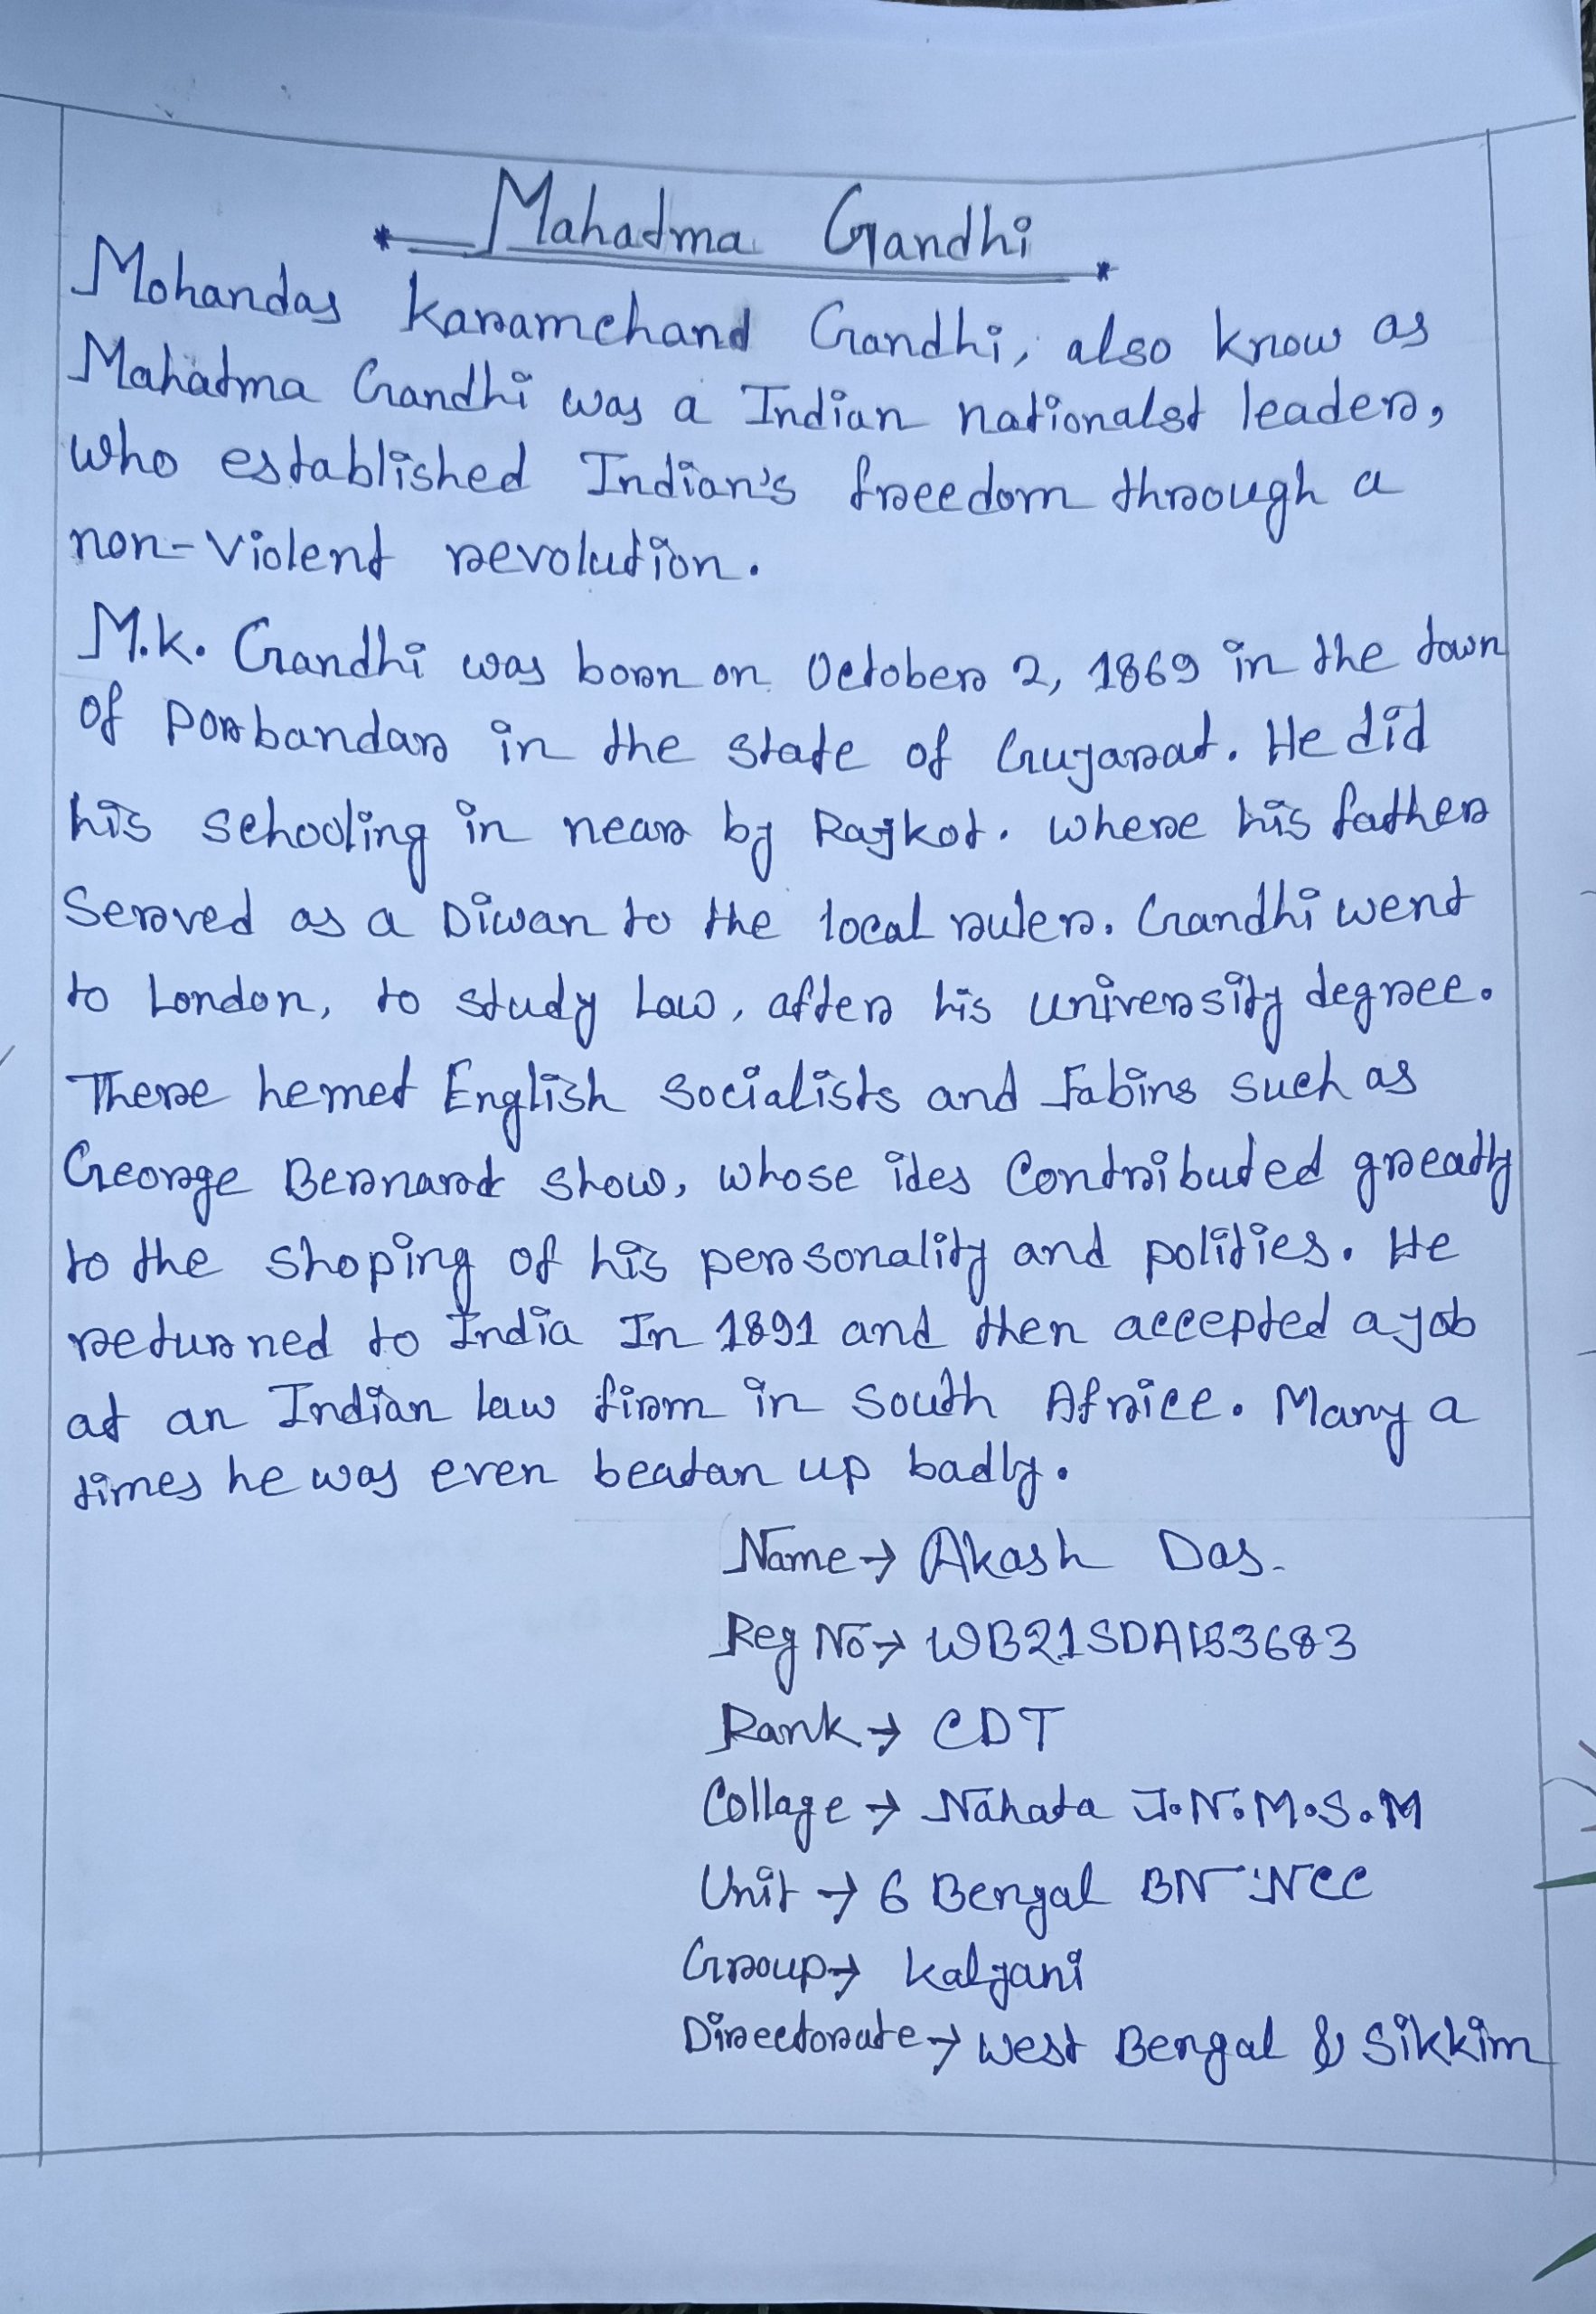 Mahatma Gandhi
Mohandas Karamchand Gandhi, also know as
Mahatma Gandhi was a Indian nationalst leader,
who established Indian's freedom through a
non-violent revolution.
M.K. Gandhi was born on October 2, 1869 in the town
of Porbandar in the state of Gujarat. He did
his schooling in near by Rajkot. where his father
Served as a Diwan to the local ruler. Gandhi went
to London, to study Law, after his university degree.
There he met English Socialists and Fabins such as
George Bernard show, whose ides Contributed greatly
to the shoping of his personality and polities. He
returned to India In 1891 and then accepted a job
at an Indian law firm in South Africe. Many a
times he was even beatan up badly.
Name → Akash Das.
Reg No → WB21SDA153683
Rank → CDT
Collage → Nahata J.N.M.S.M
Unit → 6 Bengal BN NCC
Group → Kalyani
Directorate → West Bengal & Sikkim